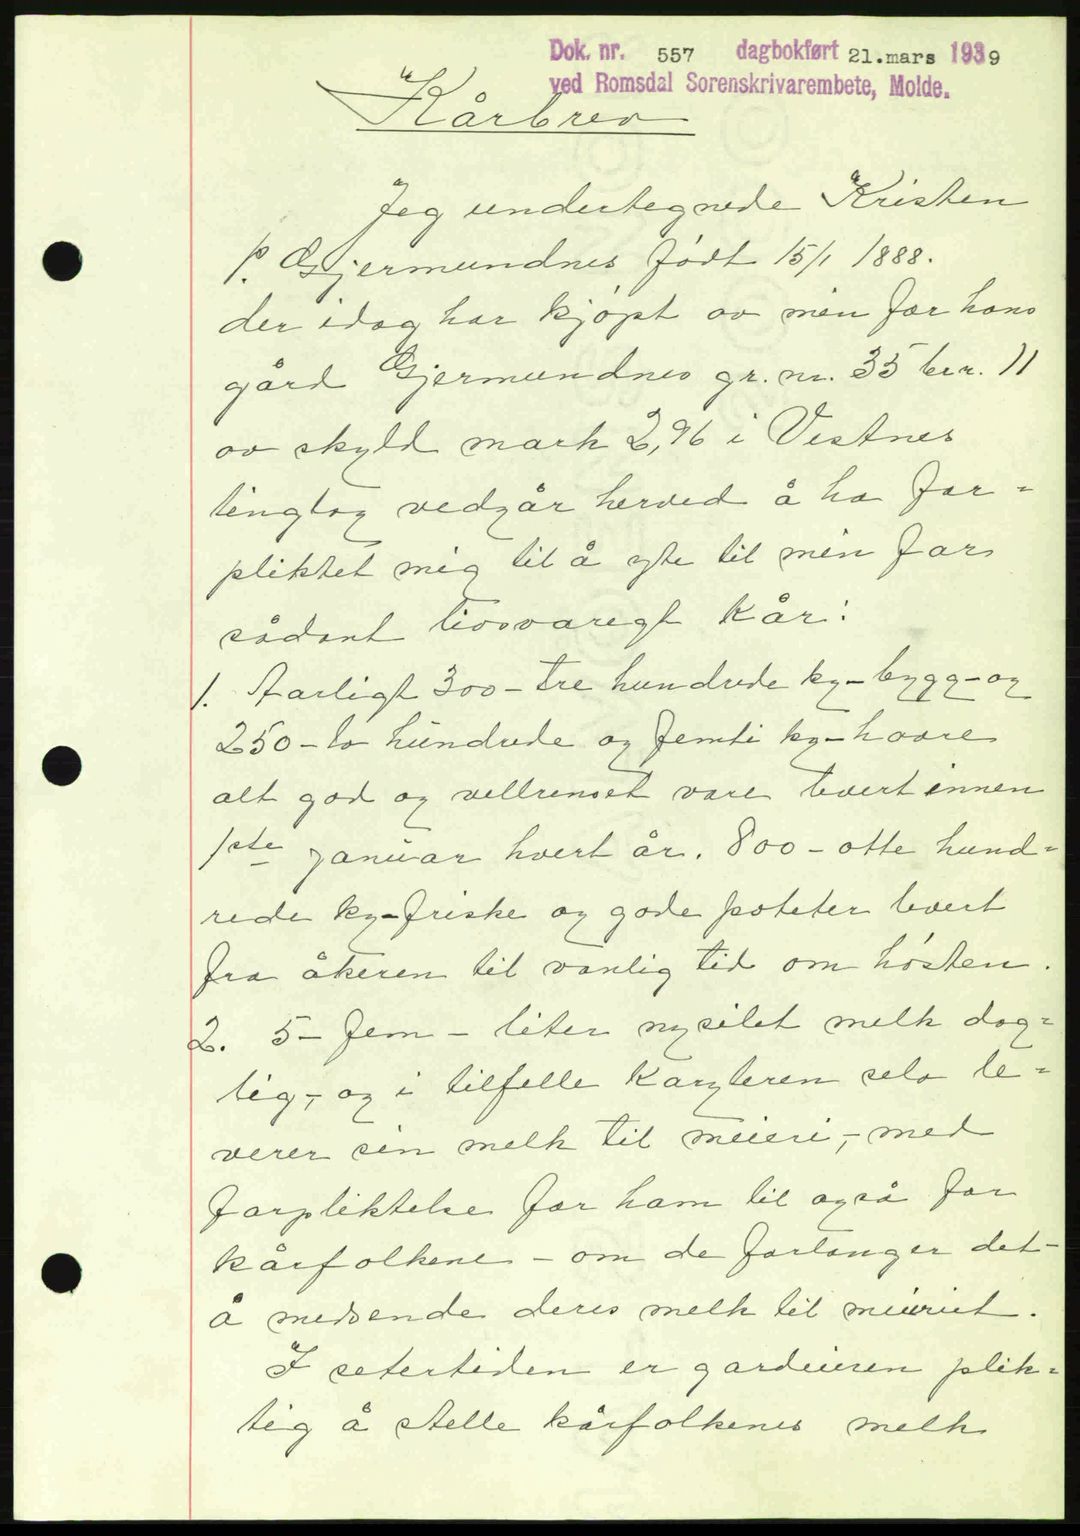 Dok. nr. 557 dagbokført 21. mars 1939
ved Romsdal Sorenskrivarembete, Molde.
Kårbrev
Jeg undertegnede Kristen
P. Gjermundnes født 15/1 1888.
der idag har kjøpt av min far hans
gård Gjermundnes gr. nr. 35 br. nr. 11
av skyld mark 2,96 i Vestnes
tinglag vedgår herved å ha for=
pliktet mig til å yte til min far
sådant livsvarigt kår:
1. Aarligt 300 - tre hundrede kg - bygg - og
250 - to hundrede og femti kg - havre
alt god og vellrenset vare levert innen
1ste januar hvert år. 800 - otte hund=
rede kg - friske og gode poteter levert
fra åkeren til vanlig tid om høsten.
2. 5 - fem - liter nysilet melk dag=
lig, - og i tilfelle kargteren selv le=
verer sin melk til meieri, - med
forpliktelse for ham til også for
kårfolkene - om de forlanger det -
å medsende deres melk til meieriet.
I setertiden er gardeieren plik=
tig å stelle kårfolkenes melk